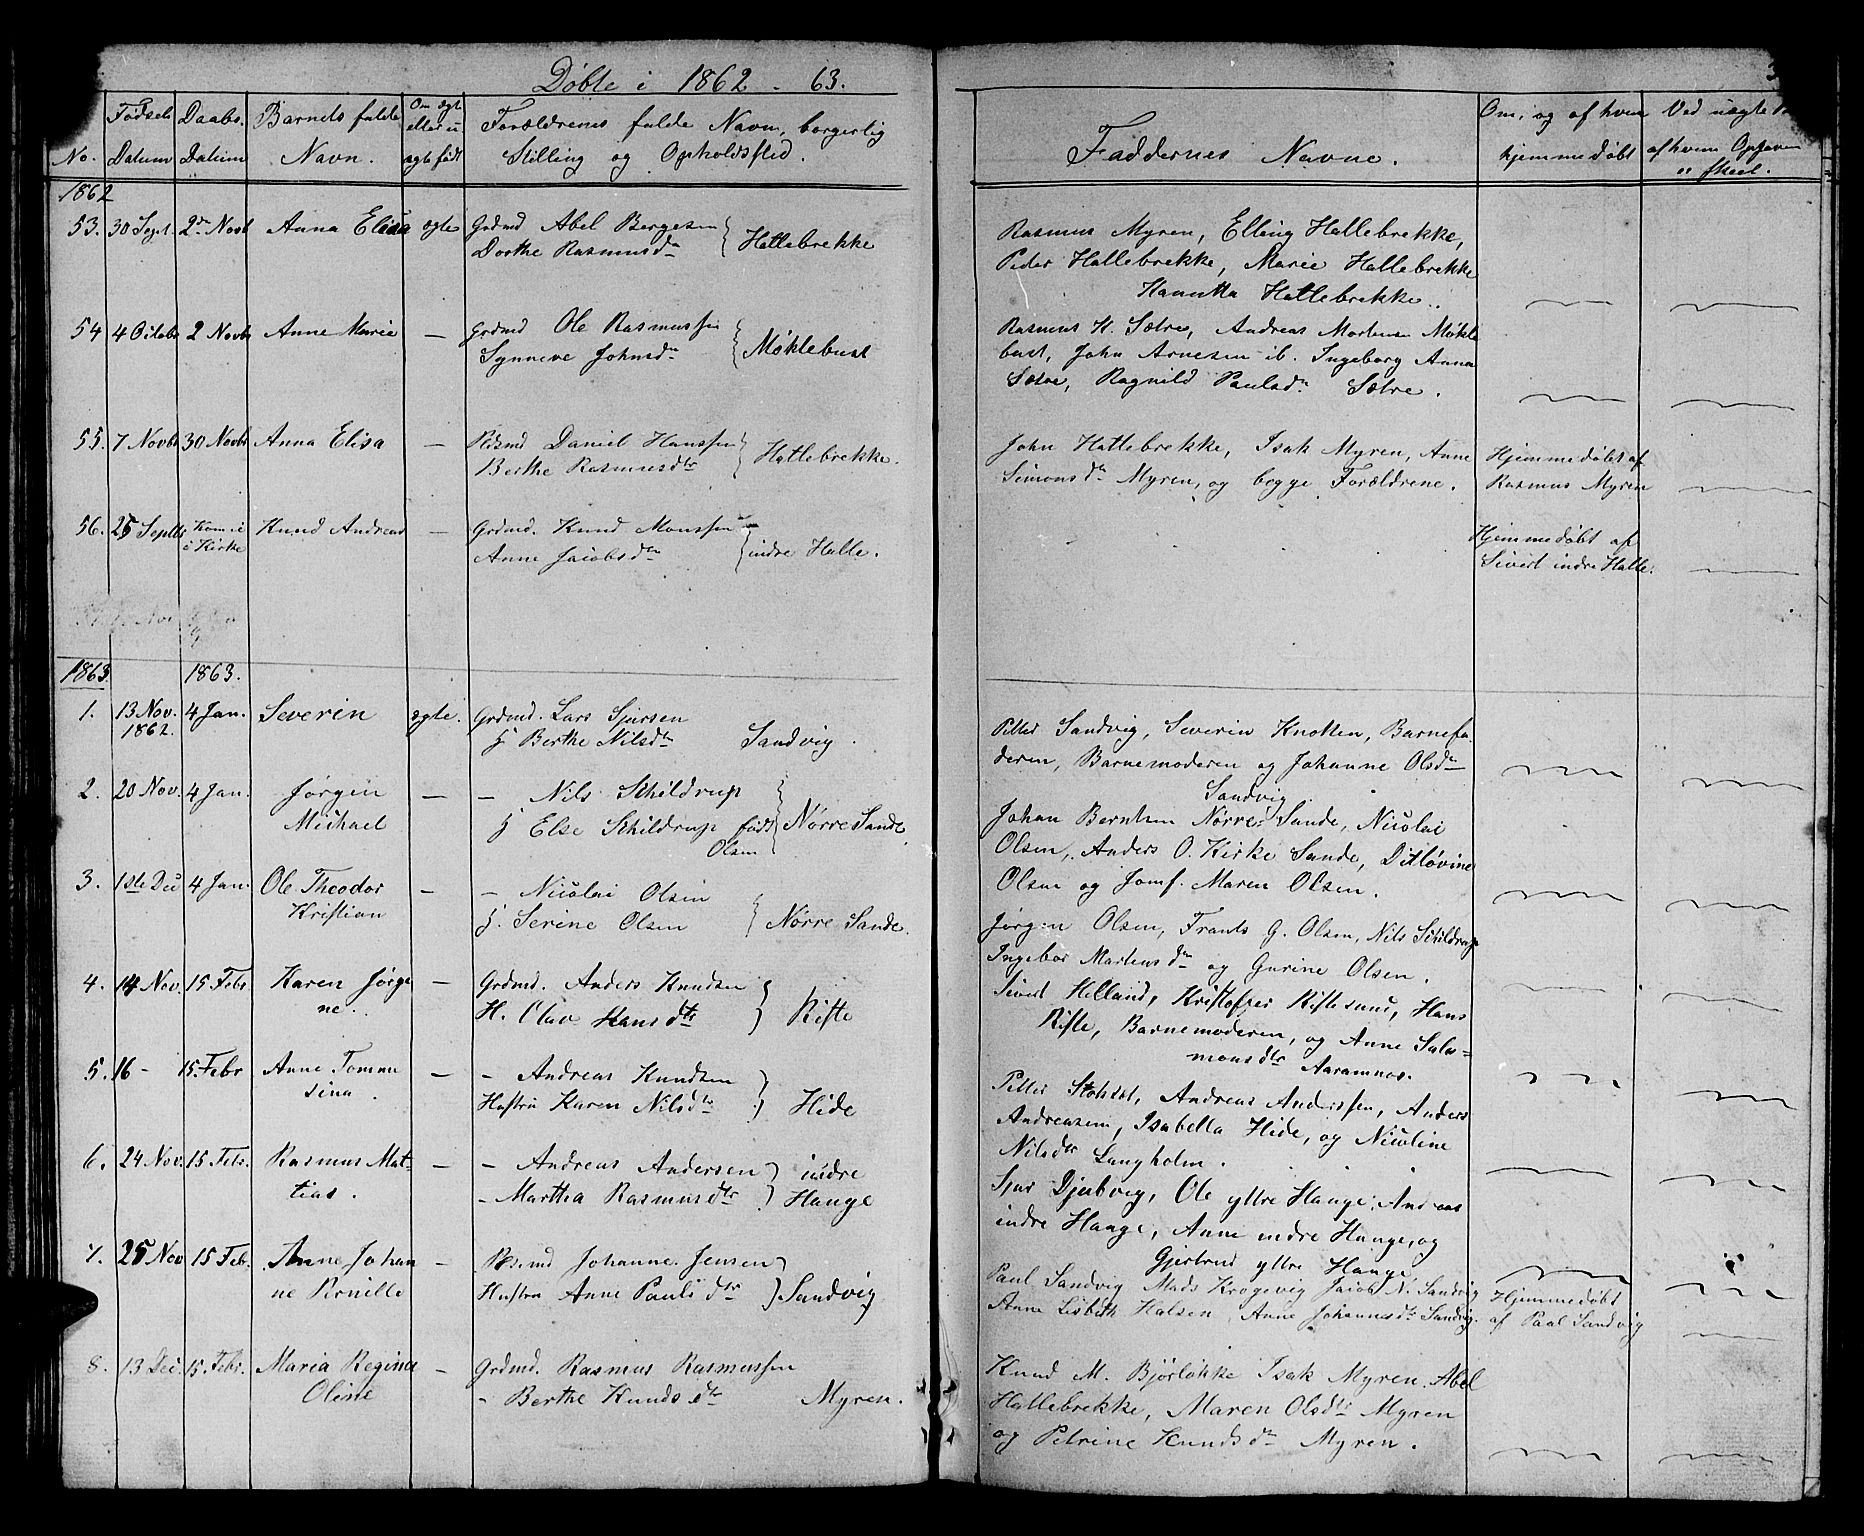 Døbte i 1862 - 63.
No.
Fødsels Datum
Daabs Datum
Barnets fulde Navn.
Om ægte eller uægte født
Forældrenes fulde Navn, borgerlig Stilling og Opholdssted.
Faddernes Navne.
Om, og af hvem hjemmedøbt
Ved uægte
af hvem Opgaven
er skeet.
1862
53. 30 Sept. 2den Novb Anna Elisa ægte Grdmd Abel Bergesen
Dorthe Rasmusdtr } Hattebrekke
Rasmus Myren, Elling Hattebrekke,
Peder Hattebrekke, Marie Hattebrekke
Hattebrekke.
54 4 Octobr 2 Novbr Anne Marie — Grdmd Ole Rasmussen
Synneve Johnsdtr } Møklebust
Rasmus H. Sætre, Andreas Mortensen Møkle
bust, John Arnesen ib. Ingeborg Anna
Sætre, Ragnild Paulsdtr Sætre.
55. 7 Novbr 30 Novbr Anna Elisa — Plsmd Daniel Hanssen
Berthe Rasmusdtr } Hattebrekke.
John Hattebrekke, Isak Myren, Anne
Simonsdtr Myren, og begge Forældrene.
Hjemmedøbt af
Rasmus Myren
56. 25 Septbr Kom ei i Kirke Knud Andreas — Grdmd. Knud Monssen
Anne Jacobsdtr } indre Halle.
Hjemmedøbt af
Sivert indre Halle.
1863 1863.
1. 13 Nov. 1862. 4 Jan. Severin ægte. Grdmd. Lars Sjursen
H Berthe Nilsdtr Sandvig.
Petter Sandvig, Severin Knotten, Barnefa-
deren, Barnemoderen og Johanne Olsdtr
Sandvig.
2. 20 Nov. 4 Jan. Jørgen
Michael — - Nils Schildrup
H Else Schildrup født
Olsen } Nørre Sande
Johan Berntsen Nørre Sande, Nicolai
Olsen, Anders O. Kirke Sande, Ditløvine
Olsen og Jomf. Maren Olsen.
3. 1ste Dec 4 Jan. Ole Theodor
Kristian — - Nicolai Olsen
H. Serine Olsen } Nørre Sande.
Jørgen Olsen, Frants G. Olsen, Nils Schildrup
Ingebor Martensdtr og Gurine Olsen.
4. 14 Nov. 15 Febr. Karen Jørgi
ne. — Grdmd. Anders Knudsen
H. Olav Hansdtr } Rifte
Sivert Helland, Kristofer Riftesund, Hans
Rifte, Barnemoderen, og Anne Salo=
monsdtr Aaramnæs.
5. 16 - 15. Febr Anne Tomme
sina. — - Andreas Knudsen
Hustru Karen Nilsdtr } Hide
Petter Andreas Anderssen, Anders
Andreasen, Isabella Hide, og Nicoline
Nilsdtr Langholm.
6. 24 Nov. 15 Febr. Rasmus Mat-
tias. — - Andreas Andersen
- Martha Rasmusdtr } indre
Hauge
Sjur Djubvig, Ole yttre Hauge, Andreas
indre Hauge, Anne indre Hauge, og
Gjertrud yttre Hauge
7. 25 Nov 15 Feb. Anne Johan
ne Pernille — Plsmd Johannes Jensen
Hustru Anne Paulsdtr } Sandvig
Paul Sandvig Mads Krogevig Jacob N. Sandvig
Anne Lisbeth Halsen, Anne Johannesdtr Sandvig.
Hjemmedøbt
af Paal Sandvig
8. 13 Dec. 15. Febr. Maria Regina
Oline — Grdmd. Rasmus Rasmussen
- Berthe Knudsdtr Myren.
Knud M. Bjørløkke Isak Myren. Abel
Hattebrekke, Maren Olsdtr Myren
og Petrine Knudsdtr Myren.